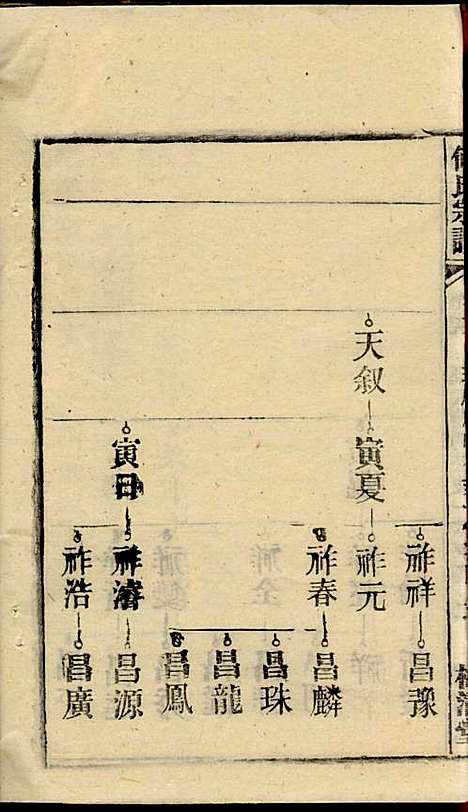 氏宗譜
祚祥
昌豫
天叙
寅夏
祚元
祚春
昌麟
昌珠
昌龍
昌鳳
寅日
祚濬
昌源
祚浩
昌廣